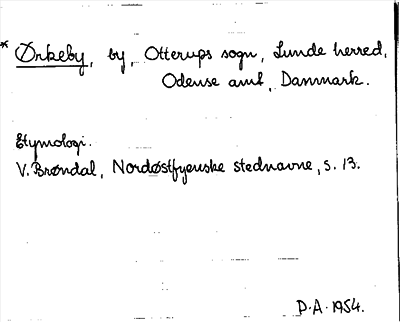 * Ørkeby, by, Otterups sogn, Lunde herred,
Odense amt, Danmark.
Etymologi.
V. Brøndal, Nordøstfyenske stednavne, s. 13.
D.A. 1954.